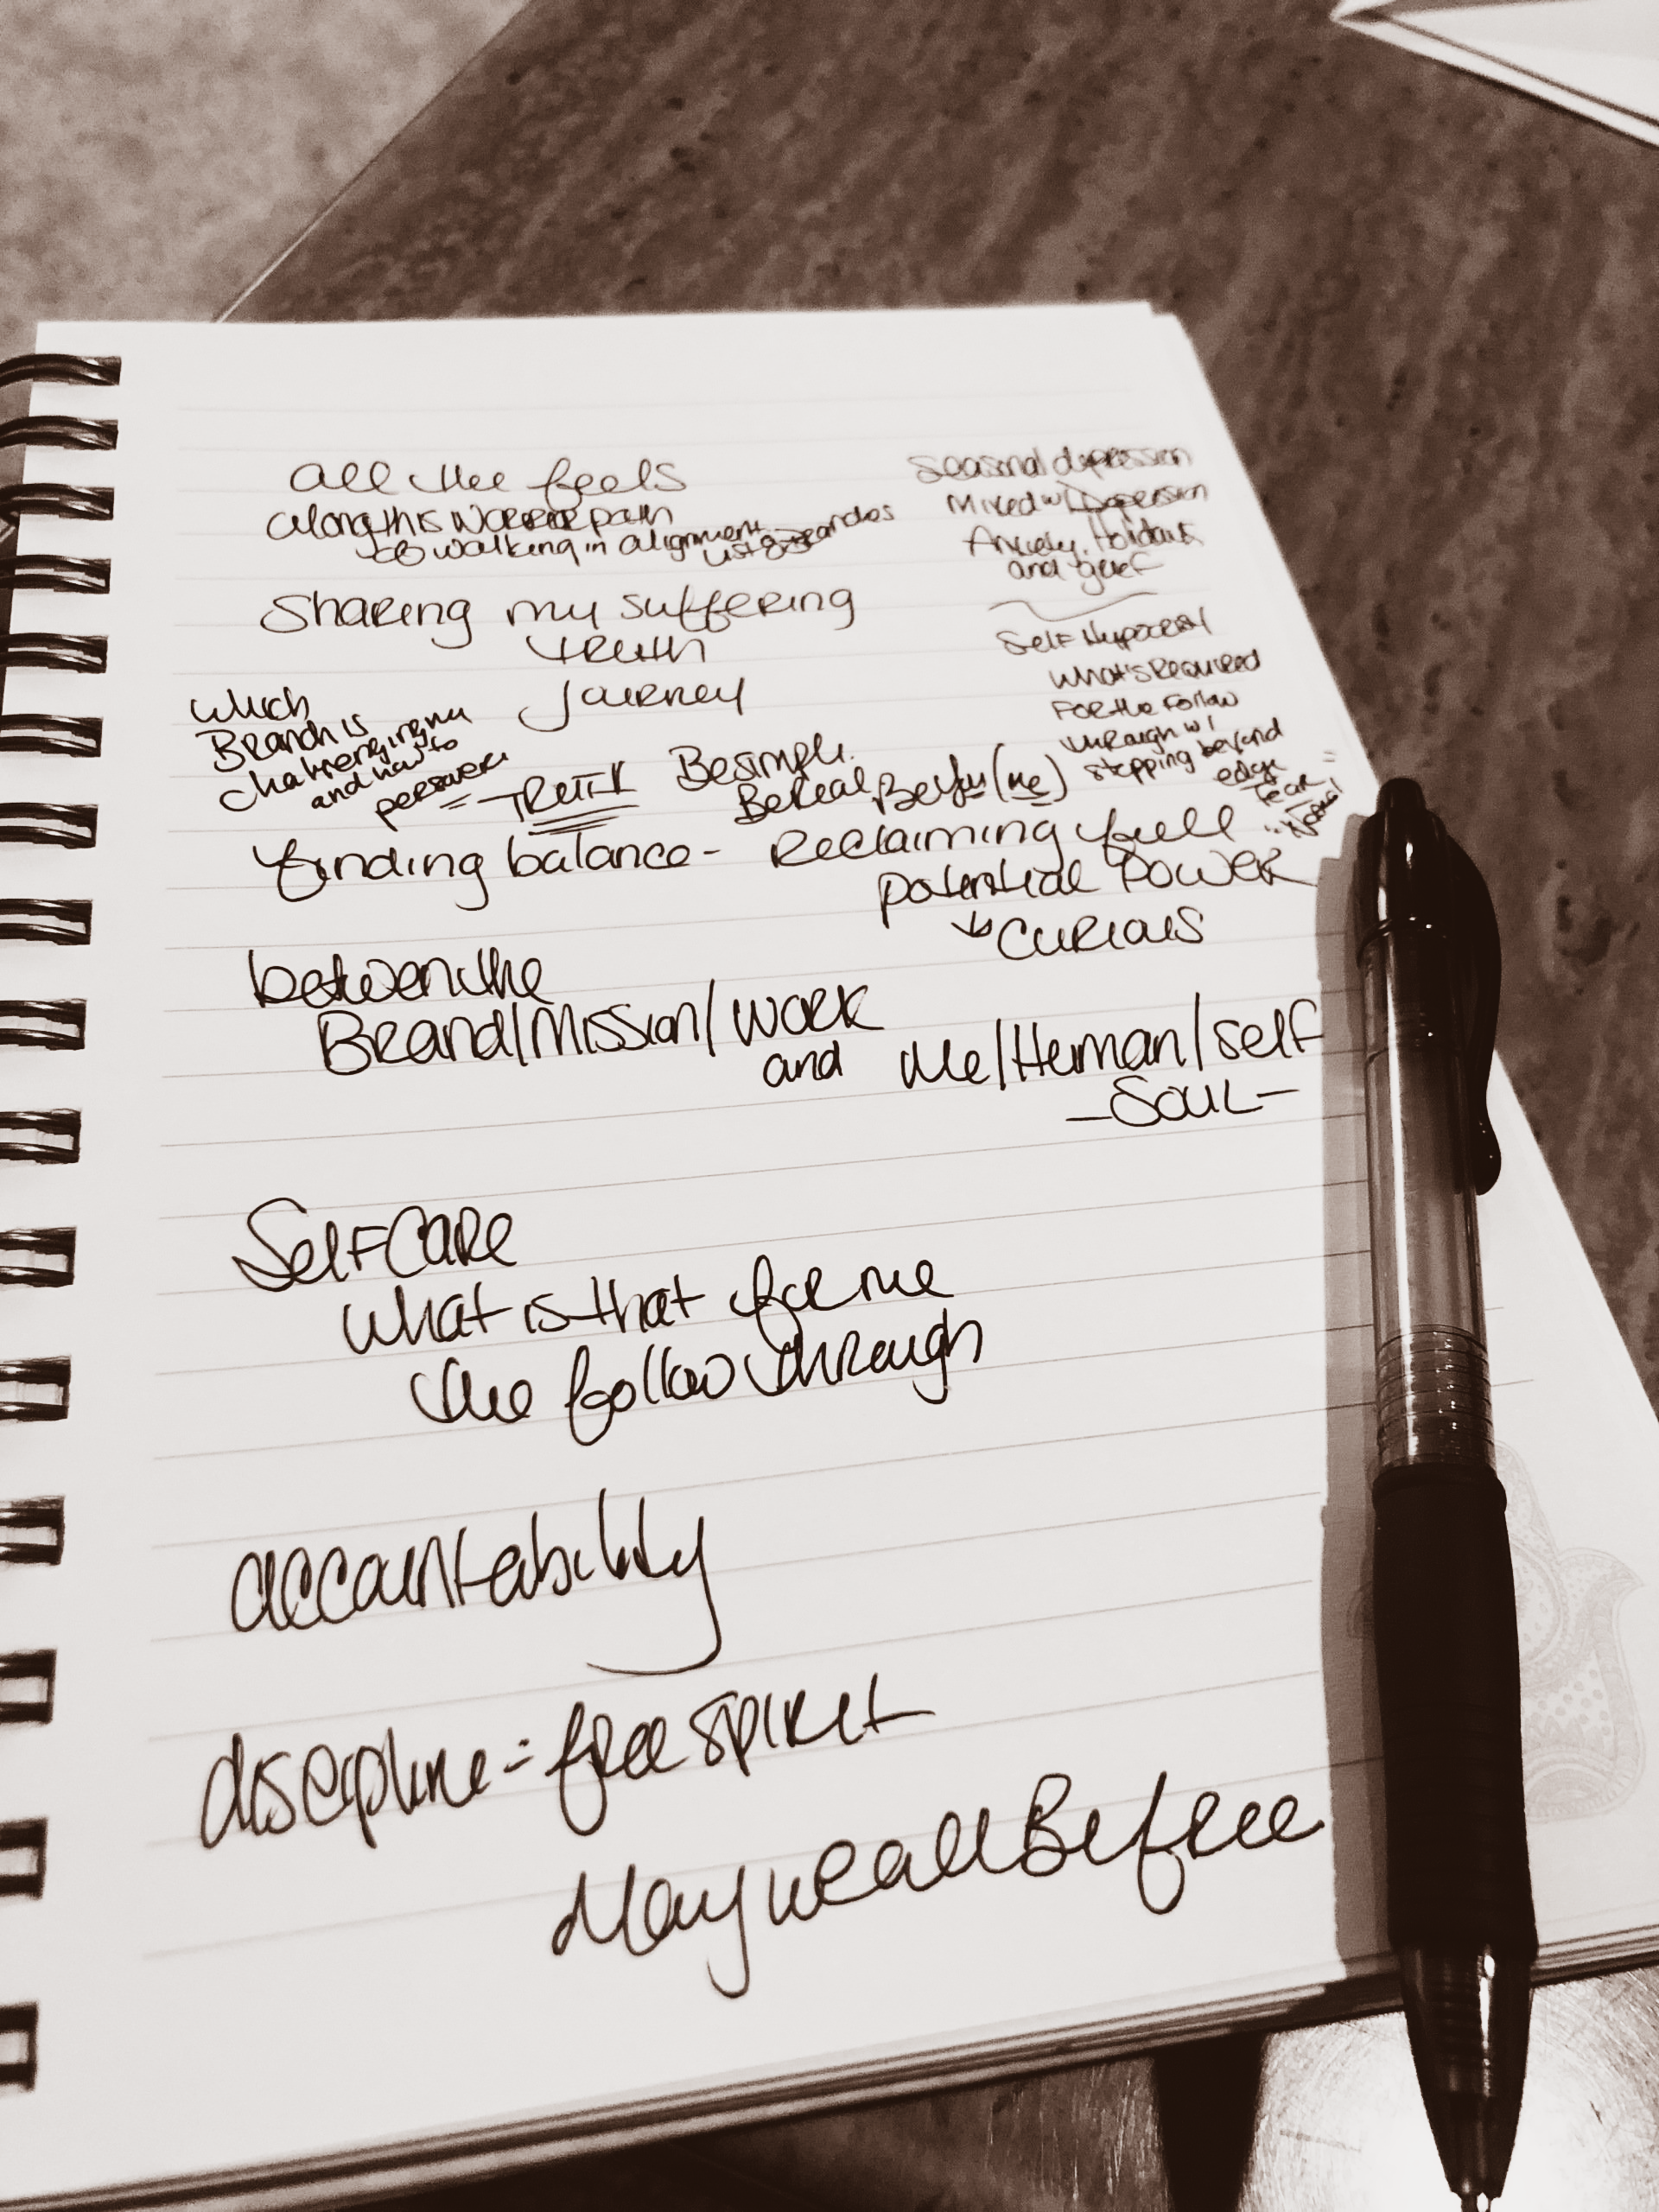 all the feels
along this warrior path
walking in alignment
Sharing my suffering
truth
Journey
Seasonal depression
Mixed w/ Depression
Anxiety, Holidays
and grief
Self Hypocrisy
What's Required
For the Follow
through w/
stepping beyond
edge
fear
"Normal"
which
Branch is
challenging me
and how to
persevere
= TRUTH
Be simple.
Be Real, Be you (me)
finding balance - Reclaiming full
potential POWER
↳ Curious
between the
Brand/Mission/Work
and Me/Human/Self
- SOUL -
Self CARE
What is that for me
the follow through
accountability
discipline = free spirit
May we all Be free